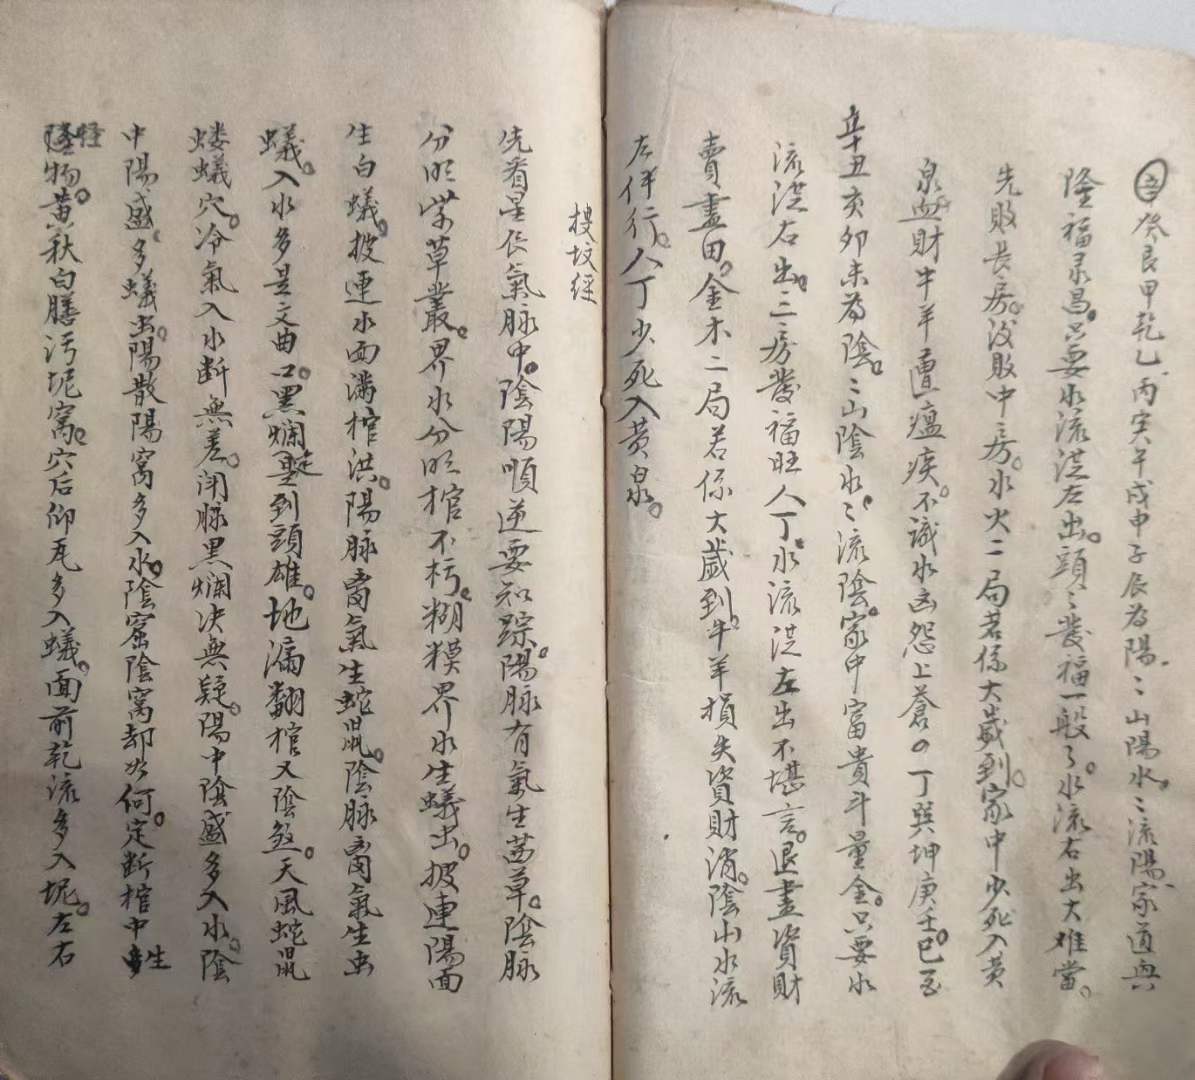 癸艮甲乾乙丙寅午戌申子辰為陽。〻山陽水。〻流陽。家道興
隆福泰昌。只要水流洪左出。頭〻發福一般〻。水流右出大难當。
先敗長房。後敗中房。水火二局若係大歲到。家中少死入黄
泉。財牛羊遭瘟疾。不識水凶怨上蒼。丁巽坤庚壬巳至
辛丑亥卯未為陰。〻山陰水。〻流陰。家中富貴斗量金。只要水
流洪右出。三房發福旺人丁。水流洪左出不堪言。退盡資財
賣盡田。金木二局若係大歲到。牛羊損失資財消。陰山水流
左伴行。人丁少死入黄泉。
搜坟經
先看星辰氣脉中。陰陽順逆要知踪。陽脉有氣生茜草。陰脉
分明紫草叢。界水分明棺不朽。糊糢界水生蟻虫。披連陽面
生白蟻。披連水面滿棺洪。陽脉氣生蛇鼠。陰脉氣生虫
蟻。入水多是文曲口。黑爛到頭雄。地漏翻棺又陰煞。天風蛇鼠
螻蟻穴。冷氣入水斷無差。闭脉黑爛决無疑。陽中陰盛多入水。陰
中陽盛。多蟻虫。陽散陽窩多入水。陰窟陰窩却如何。定断棺中生
怪物。黄秋白膳污坭窩。穴后仰瓦多入蟻。面前乾流多入坭。左右